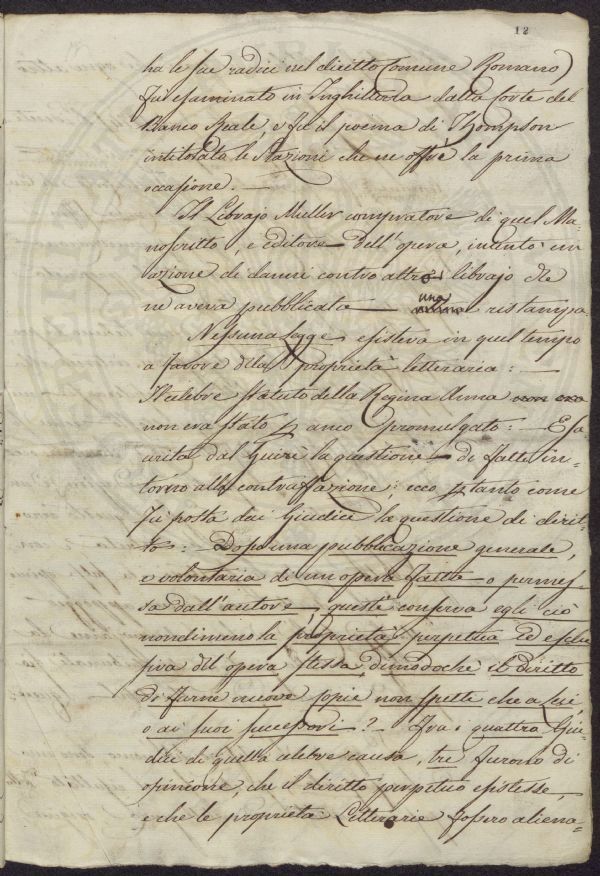 12
ha le sue radici nel diritto Comune Romano
fu esaminato in Inghilterra dalla Corte del
Banco Reale, e fu il poema di Thompson
intitolato le Stazioni che ne offrè la prima
occasione. —
Il Librajo Muller compratore di quel Ma-
noscritto, e editore dell'opera, intentò un
azione di danni contro altro librajo che
ne aveva pubblicata una ristampa.
Nessuna Legge esisteva in quel tempo
a favore della proprietà letteraria: —
Il celebre statuto della Regina Anna non era
non era stato p anco promulgato: — Esa-
urita dal Giurì la questione di fatto in-
torno alla contraffazione; ecco p tanto come
fu posta dai Giudici la questione di dirit-
to: Dopo una pubblicazione generale,
e volontaria di un opera fatta o permes-
sa dall'autore, questi conserva egli ciò
nondimeno la proprietà perpetua ed esclu-
siva dell'opera stessa dimodoche il diritto
di farne nuove copie non spetti che a lui,
o ai suoi successori? — Fra i quattro Giu-
dici di quella celebre causa, tre furono di
opinione, che il diritto perpetuo esistesse,
e che le proprietà Letterarie fossero aliena-